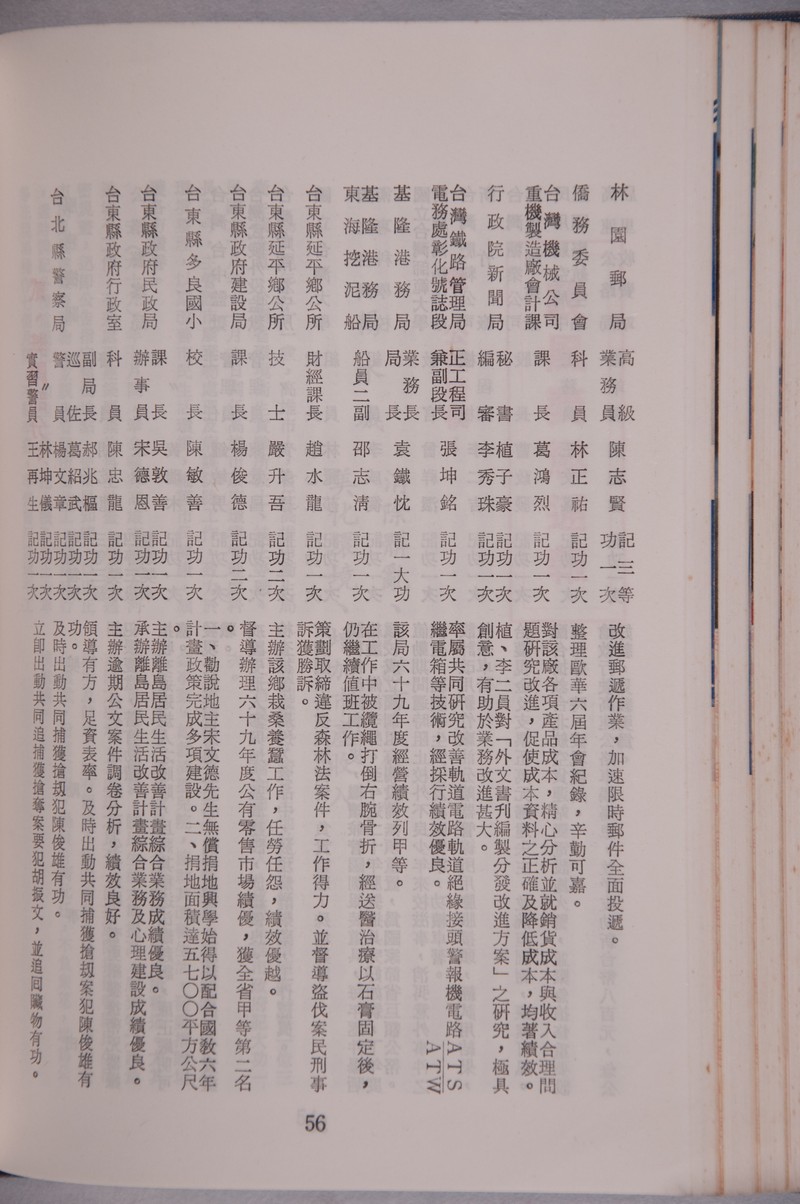 林園郵局　高級業務員　陳志賢　記三等功一次　改進郵遞作業，加速限時郵件全面投遞。
僑務委員會　科員　林正祐　記功一次　整理歐華六屆年會紀錄，辛勤可嘉。
台灣機械公司重機製造廠會計課　課長　葛鴻烈　記功一次　對該廠各項產品成本，精心分析並就銷貨成本與收入合理問題研究改進，促使成本資料之正確及降低成本，均著績效。
行政院新聞局　秘書　植子豪　記功一次　植、李二員對「外文書刊編製分發改進方案」之研究，極具
編審　李秀珠　記功一次　創意，有助於業務改進甚大。
台灣鐵路管理局電務處彰化號誌段　正工程司兼副段長　張坤銘　記功一次　率屬共同研究改善軌道電路軌道絕緣接頭警報機電路ATS ATW繼電箱等技術，經採行績效優良。
基隆港務局　業務長局長　袁鐵忱　記一大功　該局六十九年度經營績效列甲等。
基隆港務局東海挖泥船　船員二副　邵志清　記功一次　在工作中被纜繩打倒右腕骨折，經送醫治療以石膏固定後，仍繼續值班工作。
台東縣延平鄉公所　財經課長　趙水龍　記功一次　策劃取締違反森林法案件，工作得力。並督導盜伐案民刑事訴訴獲勝訴。
台東縣延平鄉公所　技士　嚴升吾　記功二次　主辦該鄉栽桑養蠶工作，任勞任怨，績效優越。
台東縣政府建設局　課長　楊俊德　記功二次　督導辦理六十九年度公有零售市場績優，獲全省甲等第二名。
台東縣多良國小　校長　陳敏善　記功一次　一、勸說地主宋文德先生無償捐地興學始得以配合國教六年計畫政策完成多項建設。二、捐地面積達五七〇〇平方公尺。
台東縣政府民政局　課長　吳敦善　記功一次　主辦離島居民生活改善計畫綜合業務成績優良。
辦事員　宋德恩　記功一次　承辦離島居民生活改善計畫綜合業務及心理建設成績優良。
台東縣政府行政室　科員　陳忠龍　記功一次　主辦逾期公文案件調卷分析，績效良好。
台北縣警察局　副局長　郝兆樞　記功一次　領導有方，足資表率。及時出動共同捕獲搶刼案犯陳俊雄有功。
巡佐　葛紹武　記功一次　及時出動共同捕獲搶刼犯陳俊雄有功。
警員　楊文章　記功一次
〃　林坤儀　記功一次　立即出動共同追捕獲搶奪案要犯胡振文，並追回贓物有功。
實習警員　王再生　記功一次
56